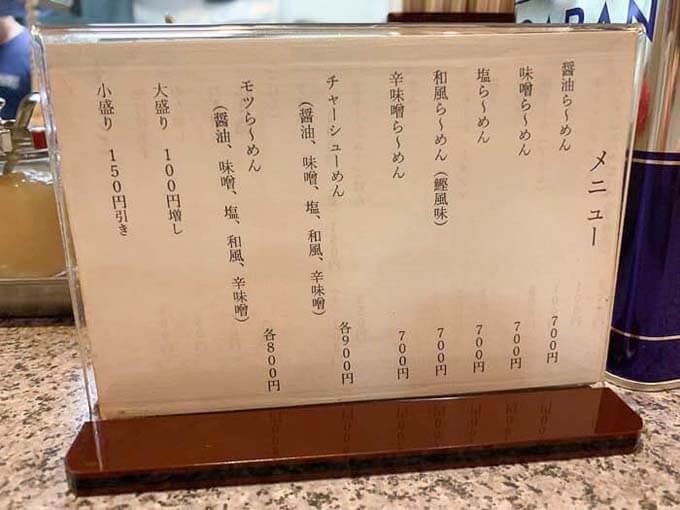 メニュー
醤油ら〜めん 700円
味噌ら〜めん 700円
塩ら〜めん 700円
和風ら〜めん（鰹風味） 700円
辛味噌ら〜めん 700円
チャーシューめん
（醤油、味噌、塩、和風、辛味噌） 各900円
モツら〜めん
（醤油、味噌、塩、和風、辛味噌） 各800円
大盛り 100円増し
小盛り 150円引き